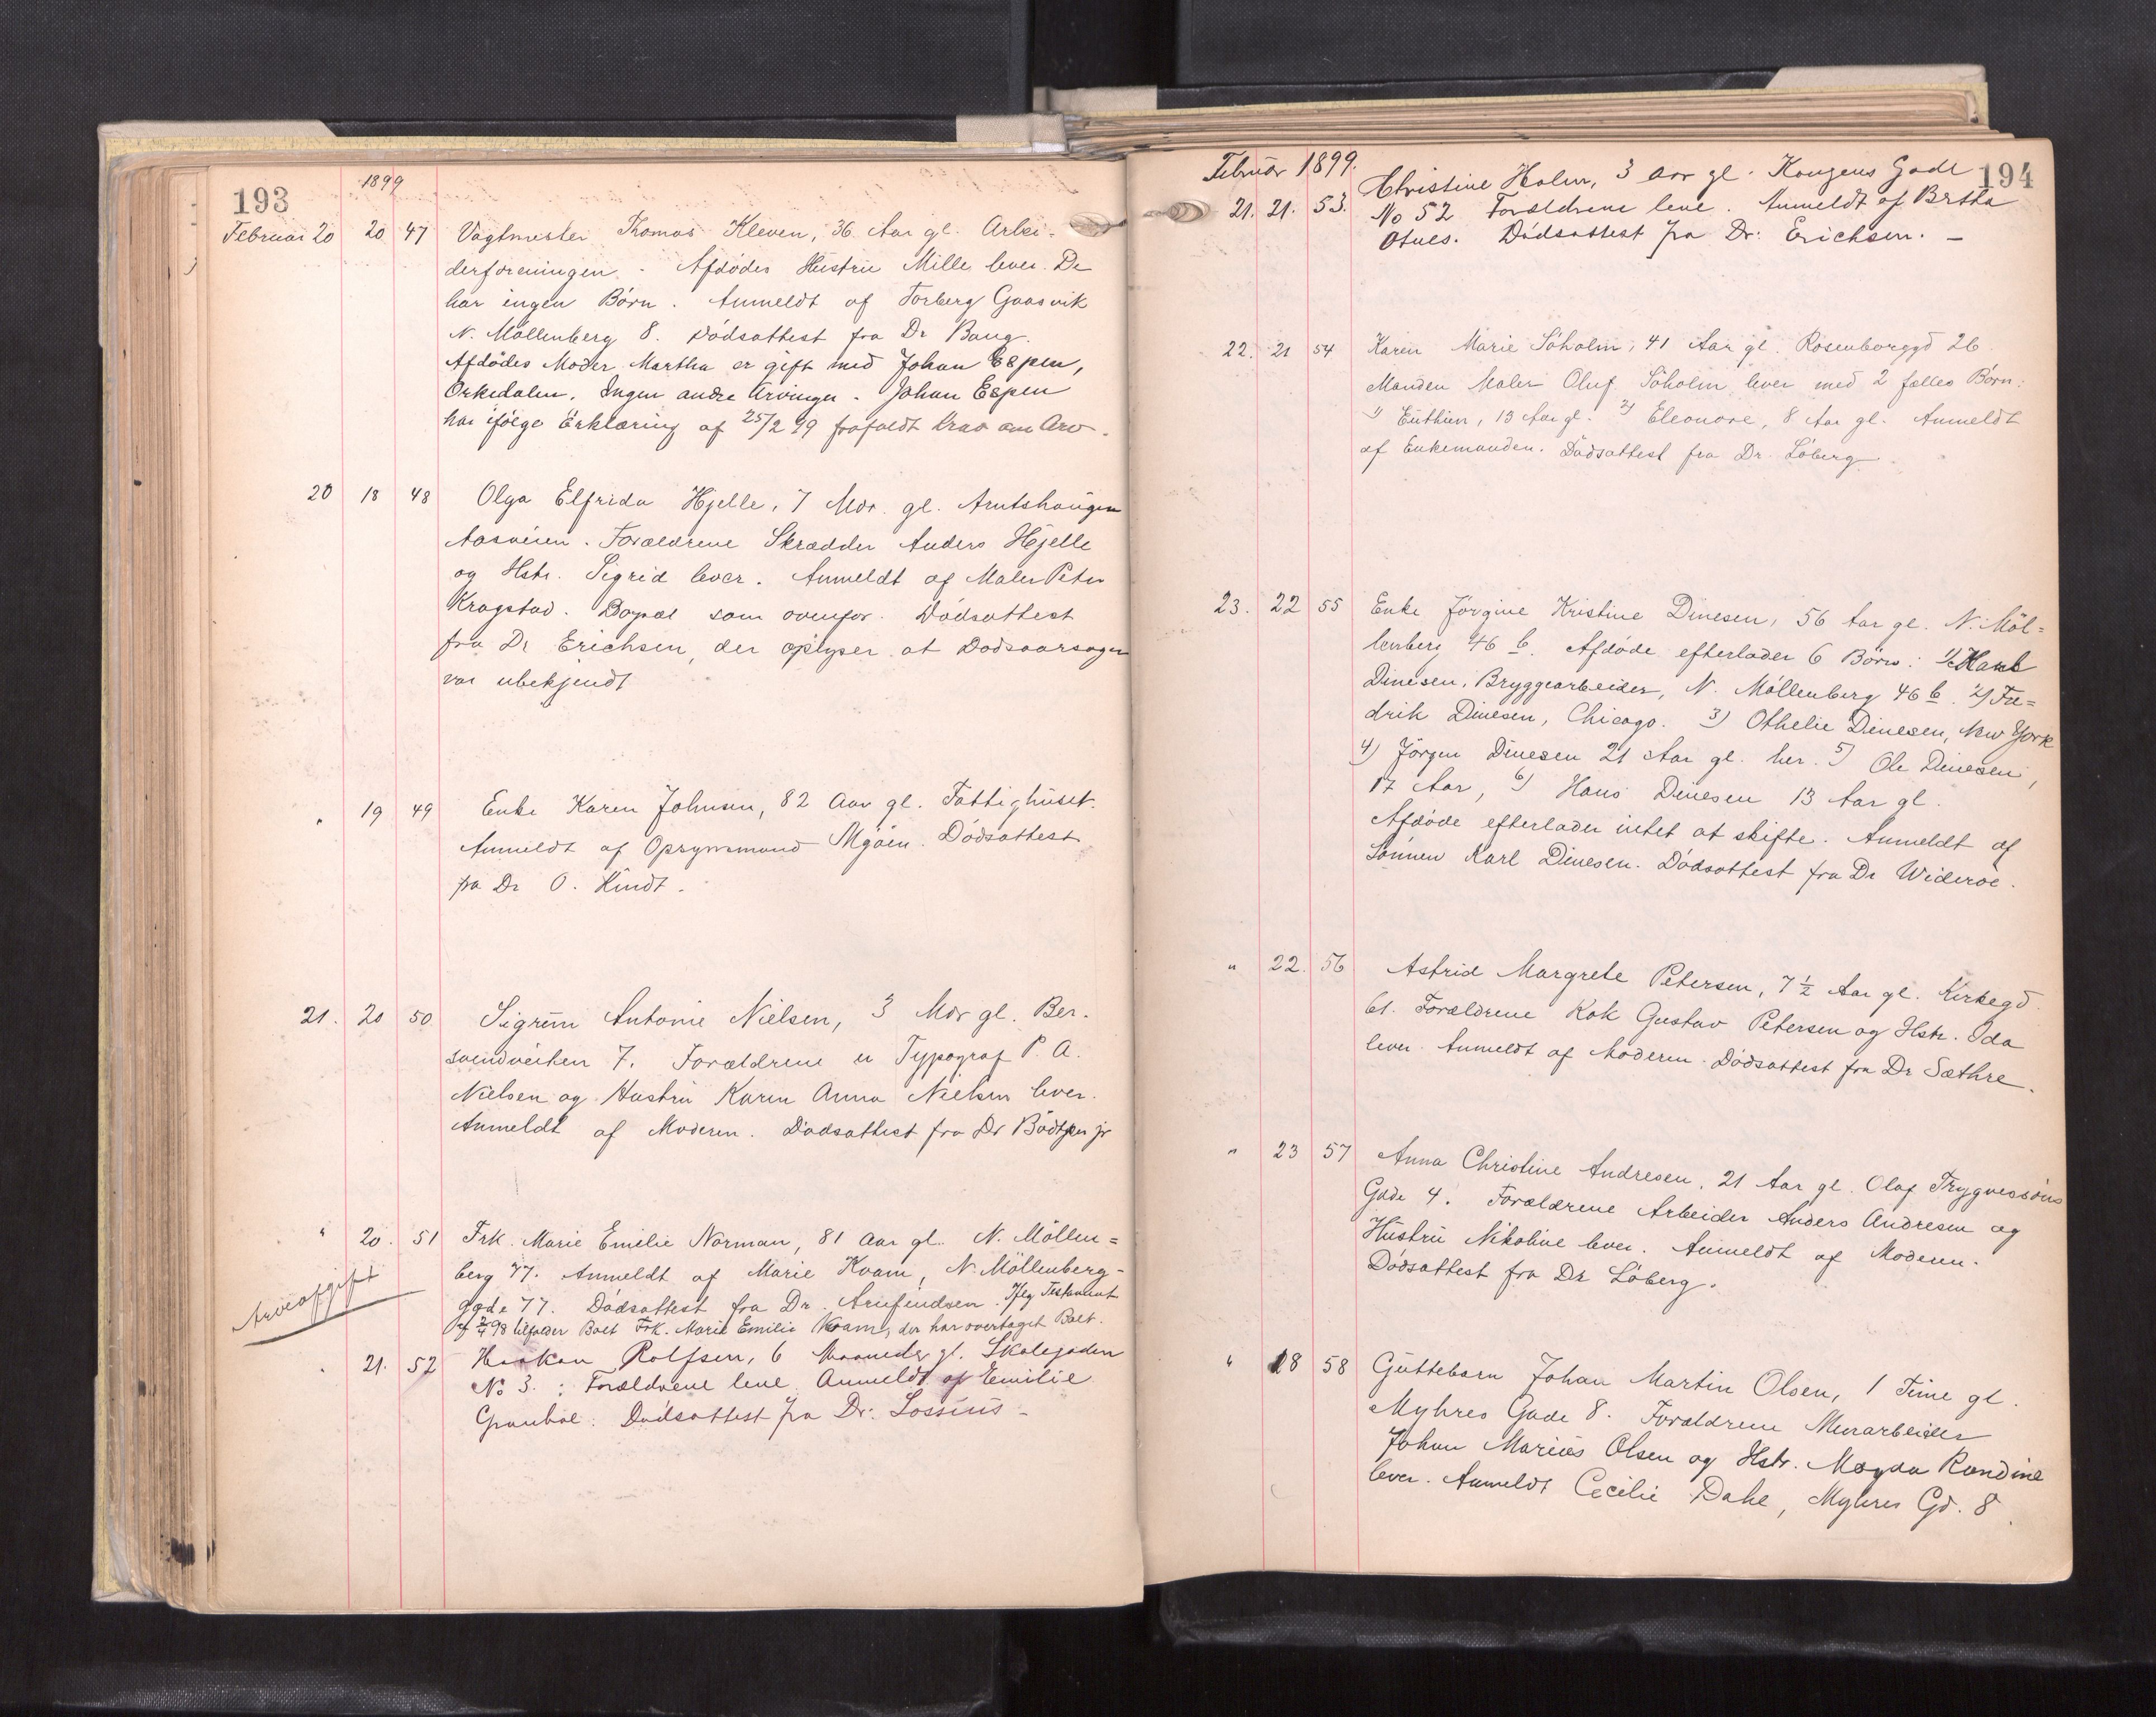 193
1899
Februar 20 20 47 Vagtmester Tomas Kleven, 36 Aar gl. Arbei-
derforeningen. Afdødes Hustru Mille lever. De
har ingen Børn. Anmeldt af Torberg Gaasvik
N. Møllenberg 8. Dødsattest fra Dr Bang.
Afdødes Moder Martha er gift med Johan Espen,
Orkedalen. Ingen andre Arvinger. Johan Espen
har ifølge Erklæring af 25/2 99 frafaldt Krav om Arv.
20 18 48 Olga Elfrida Hjelle, 7 Mdr. gl. Arntshaugen
Aasveien. Forældrene Skrædder Anders Hjelle
og Hstr. Sigrid lever. Anmeldt af Maler Peter
Kragstad. Bopæl som ovenfor. Dødsattest
fra Dr Erichsen, der oplyser at Dødsaarsagen
var ubekjendt
" 19 49 Enke Karen Johnsen, 82 Aar gl. Fattighuset.
Anmeldt af Opsynsmand Mjøen. Dødsattest
fra Dr O. Kindt.
21. 20 50 Sigrun Antonie Nielsen, 3 Mdr gl. Ber-
svendveiten 7. Forældrene er Typograf P. A.
Nielsen og Hustru Karen Anna Nielsen lever.
Anmeldt af Moderen. Dødsattest fra Dr Bødtker jr
" 20. 51 Frk. Marie Emilie Norman, 81 Aar gl. N. Møllen=
berg 77. Anmeldt af Marie Kvam, N. Møllenberg-
gade 77. Dødsattest fra Dr. Arnfindsen. Iflg Testament
af 2/4 98 tilfalder Boet Frk. Marie Emilie Kvam, der har overtaget Boet.
Arveafgift
" 21. 52 Haakon Rolfsen, 6 Maaneder gl. Skolegaden
No 3. Forældrene leve. Anmeldt af Emilie
Granboe. Dødsattest fra Dr. Lossius -
194
Februar 1899.
21. 21. 53. Christine Holm, 3 Aar gl. Kongens Gade
No 52 Forældrene leve. Anmeldt af Bertha
Dødsattest fra Dr. Erichsen. -
22. 21 54 Karen Marie Søholm, 41 Aar gl. Rosenborggd 26
Manden Maler Oluf Søholm lever med 2 fælles Børn:
1) 13 Aar gl. 2) Eleonore, 8 Aar gl. Anmeldt
af Enkemanden. Dødsattest fra Dr. Løberg
23. 22 55 Enke Jørgine Kristine Dinesen, 56 Aar gl. N. Møl=
lenberg 46 b. Afdøde efterlader 6 Børn: 1) Karl
Dinesen, Bryggearbeider, N. Møllenberg 46 b. 2) Fre=
drik Dinesen, Chicago. 3) Othelie Dinesen, New York
4) Jørgen Dinesen 21 Aar gl. her. 5) Ole Dinesen,
17 Aar, 6) Hans Dinesen 13 Aar gl.
Afdøde efterlader intet at skifte. Anmeldt af
Sønnen Karl Dinesen. Dødsattest fra Dr Widerøe.
" 22. 56 Astrid Margrete Petersen, 7 1/2 Aar gl. Kirkegd.
61. Forældrene Kok Gustav Petersen og Hstr. Ida
lever. Anmeldt af Moderen. Dødsattest fra Dr Sæthre.
" 23 57 Anna Christine Andresen, 21 Aar gl. Olaf Trygvessøns
Gade 4. Forældrene Arbeider Anders Andresen og
Hustru Nikoline lever. Anmeldt af Moderen.
Dødsattest fra Dr Løberg.
" 18 58 Guttebarn Johan Martin Olsen, 1 Time gl.
Myhres Gade 8. Forældrene Murarbeider
Johan Marius Olsen og Hstr. Magda Randine
lever. Anmeldt Cecilie Dahl, Myhres Gd. 8.